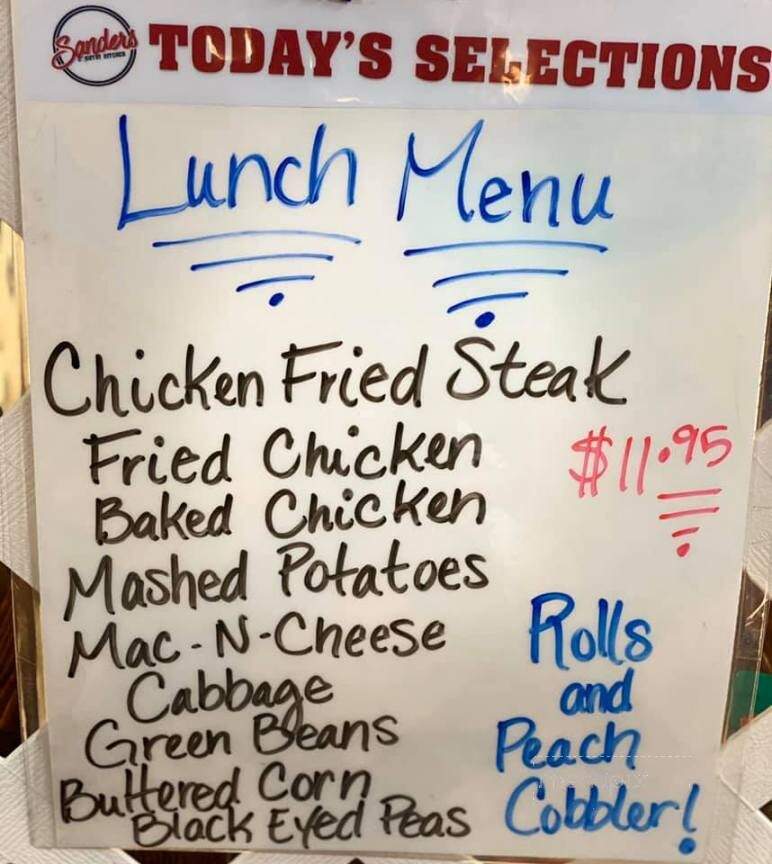 Sanders
TODAY'S SELECTIONS
Lunch Menu
Chicken Fried Steak
Fried Chicken
$11.95
Baked Chicken
Mashed Potatoes
Mac-N-Cheese
Cabbage
Green Beans
Buttered Corn
Black Eyed Peas
Rolls
and
Peach
Cobbler!